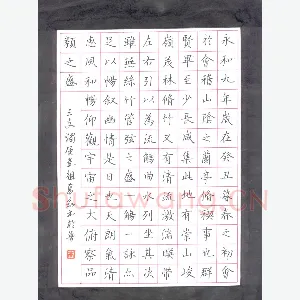 永和九年歲在癸丑暮春之初會
於會稽山陰之蘭亭脩禊事也群
賢畢至少長咸集此地有崇山峻
嶺茂林脩竹又有清流激湍暎帶
左右引以為流觴曲水列坐其次
雖無絲竹管弦之盛一觴一詠亦
足以暢敘幽情是日也天朗氣清
惠風和暢仰觀宇宙之大俯察品
類之盛
Shufawang.CN